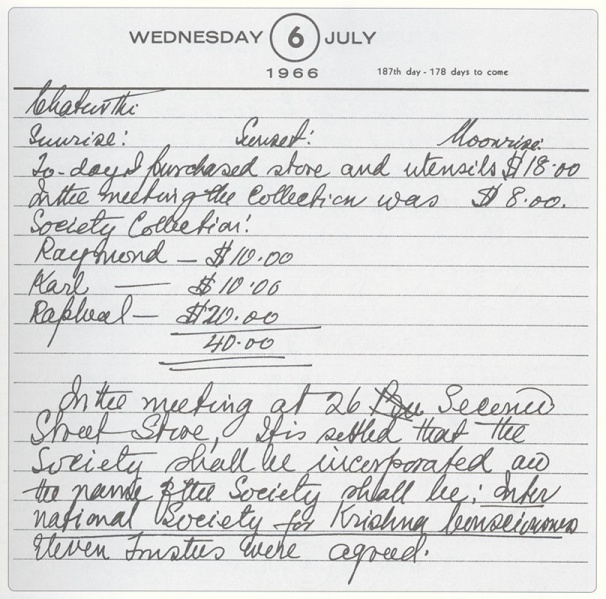 WEDNESDAY 6 JULY
1966 187th day - 178 days to come
Chaturthi
Sunrise: Sunset: Moonrise:
To-day I purchased stove and utensils $18.00
In the meeting the Collection was $8.00.
Society Collection:
Raymond — $10.00
Karl — $10.00
Raphael — $20.00
40.00
In the meeting at 26 Second
Street Store, It is settled that the
Society shall be incorporated and
the name of the Society shall be: Inter
national Society for Krishna Consciousness
Eleven Trustees were agreed.